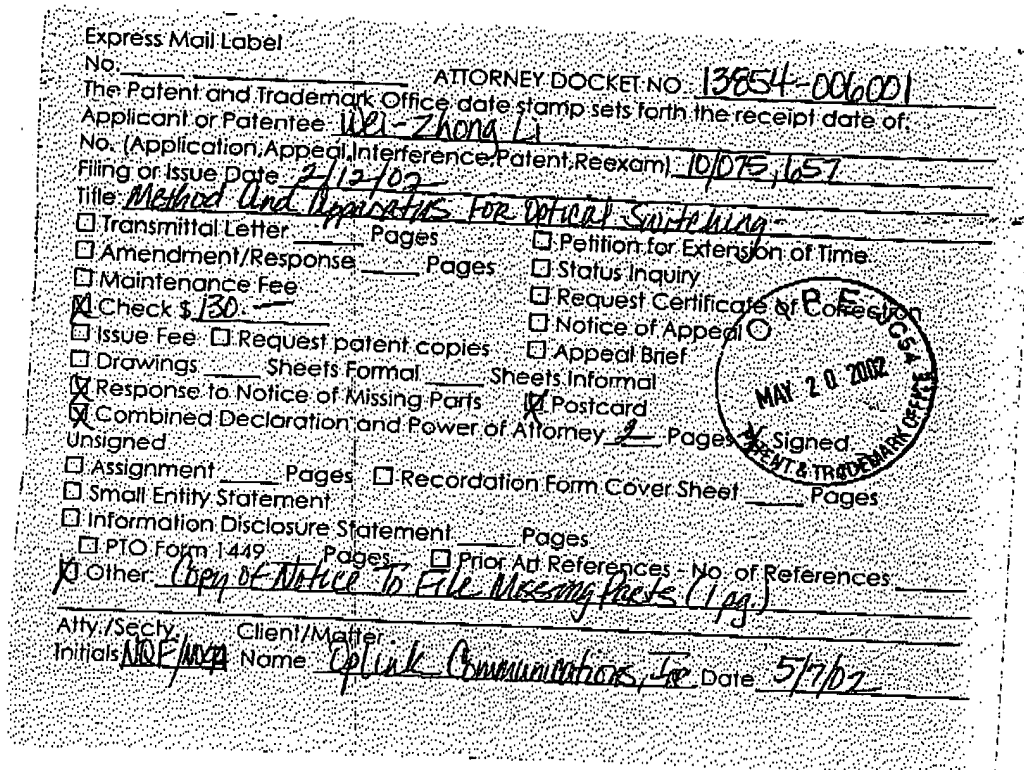 Express Mail Label
No. ATTORNEY DOCKET NO 13854-006001
The Patent and Trademark Office date stamp sets forth the receipt date of:
Applicant or Patentee Wei-Zhong Li
No. (Application, Appeal, Interference, Patent, Reexam) 10/075,657
Filing or Issue Date 2/12/02
Title Method And Apparatus For Optical Switching
☐ Transmittal Letter ____ Pages ☐ Petition for Extension of Time
☐ Amendment/Response ____ Pages ☐ Status Inquiry
☐ Maintenance Fee ☐ Request Certificate of Correction
☒ Check $ 130.— ☐ Notice of Appeal
☐ Issue Fee ☐ Request patent copies ☐ Appeal Brief
☐ Drawings ____ Sheets Formal ____ Sheets Informal
☒ Response to Notice of Missing Parts ☒ Postcard
☒ Combined Declaration and Power of Attorney 2 Pages X Signed
Unsigned
☐ Assignment ____ Pages ☐ Recordation Form Cover Sheet ____ Pages
☐ Small Entity Statement
☐ Information Disclosure Statement ____ Pages
☐ PTO Form 1449 ____ Pages ☐ Prior Art References - No. of References
☒ Other: Copy of Notice To File Missing Parts (1 pg.)
Atty./Secty. Client/Matter
Initials Name Oplink Communications, Inc Date 5/7/02
O I P E
MAY 20 2002
PATENT & TRADEMARK OFFICE